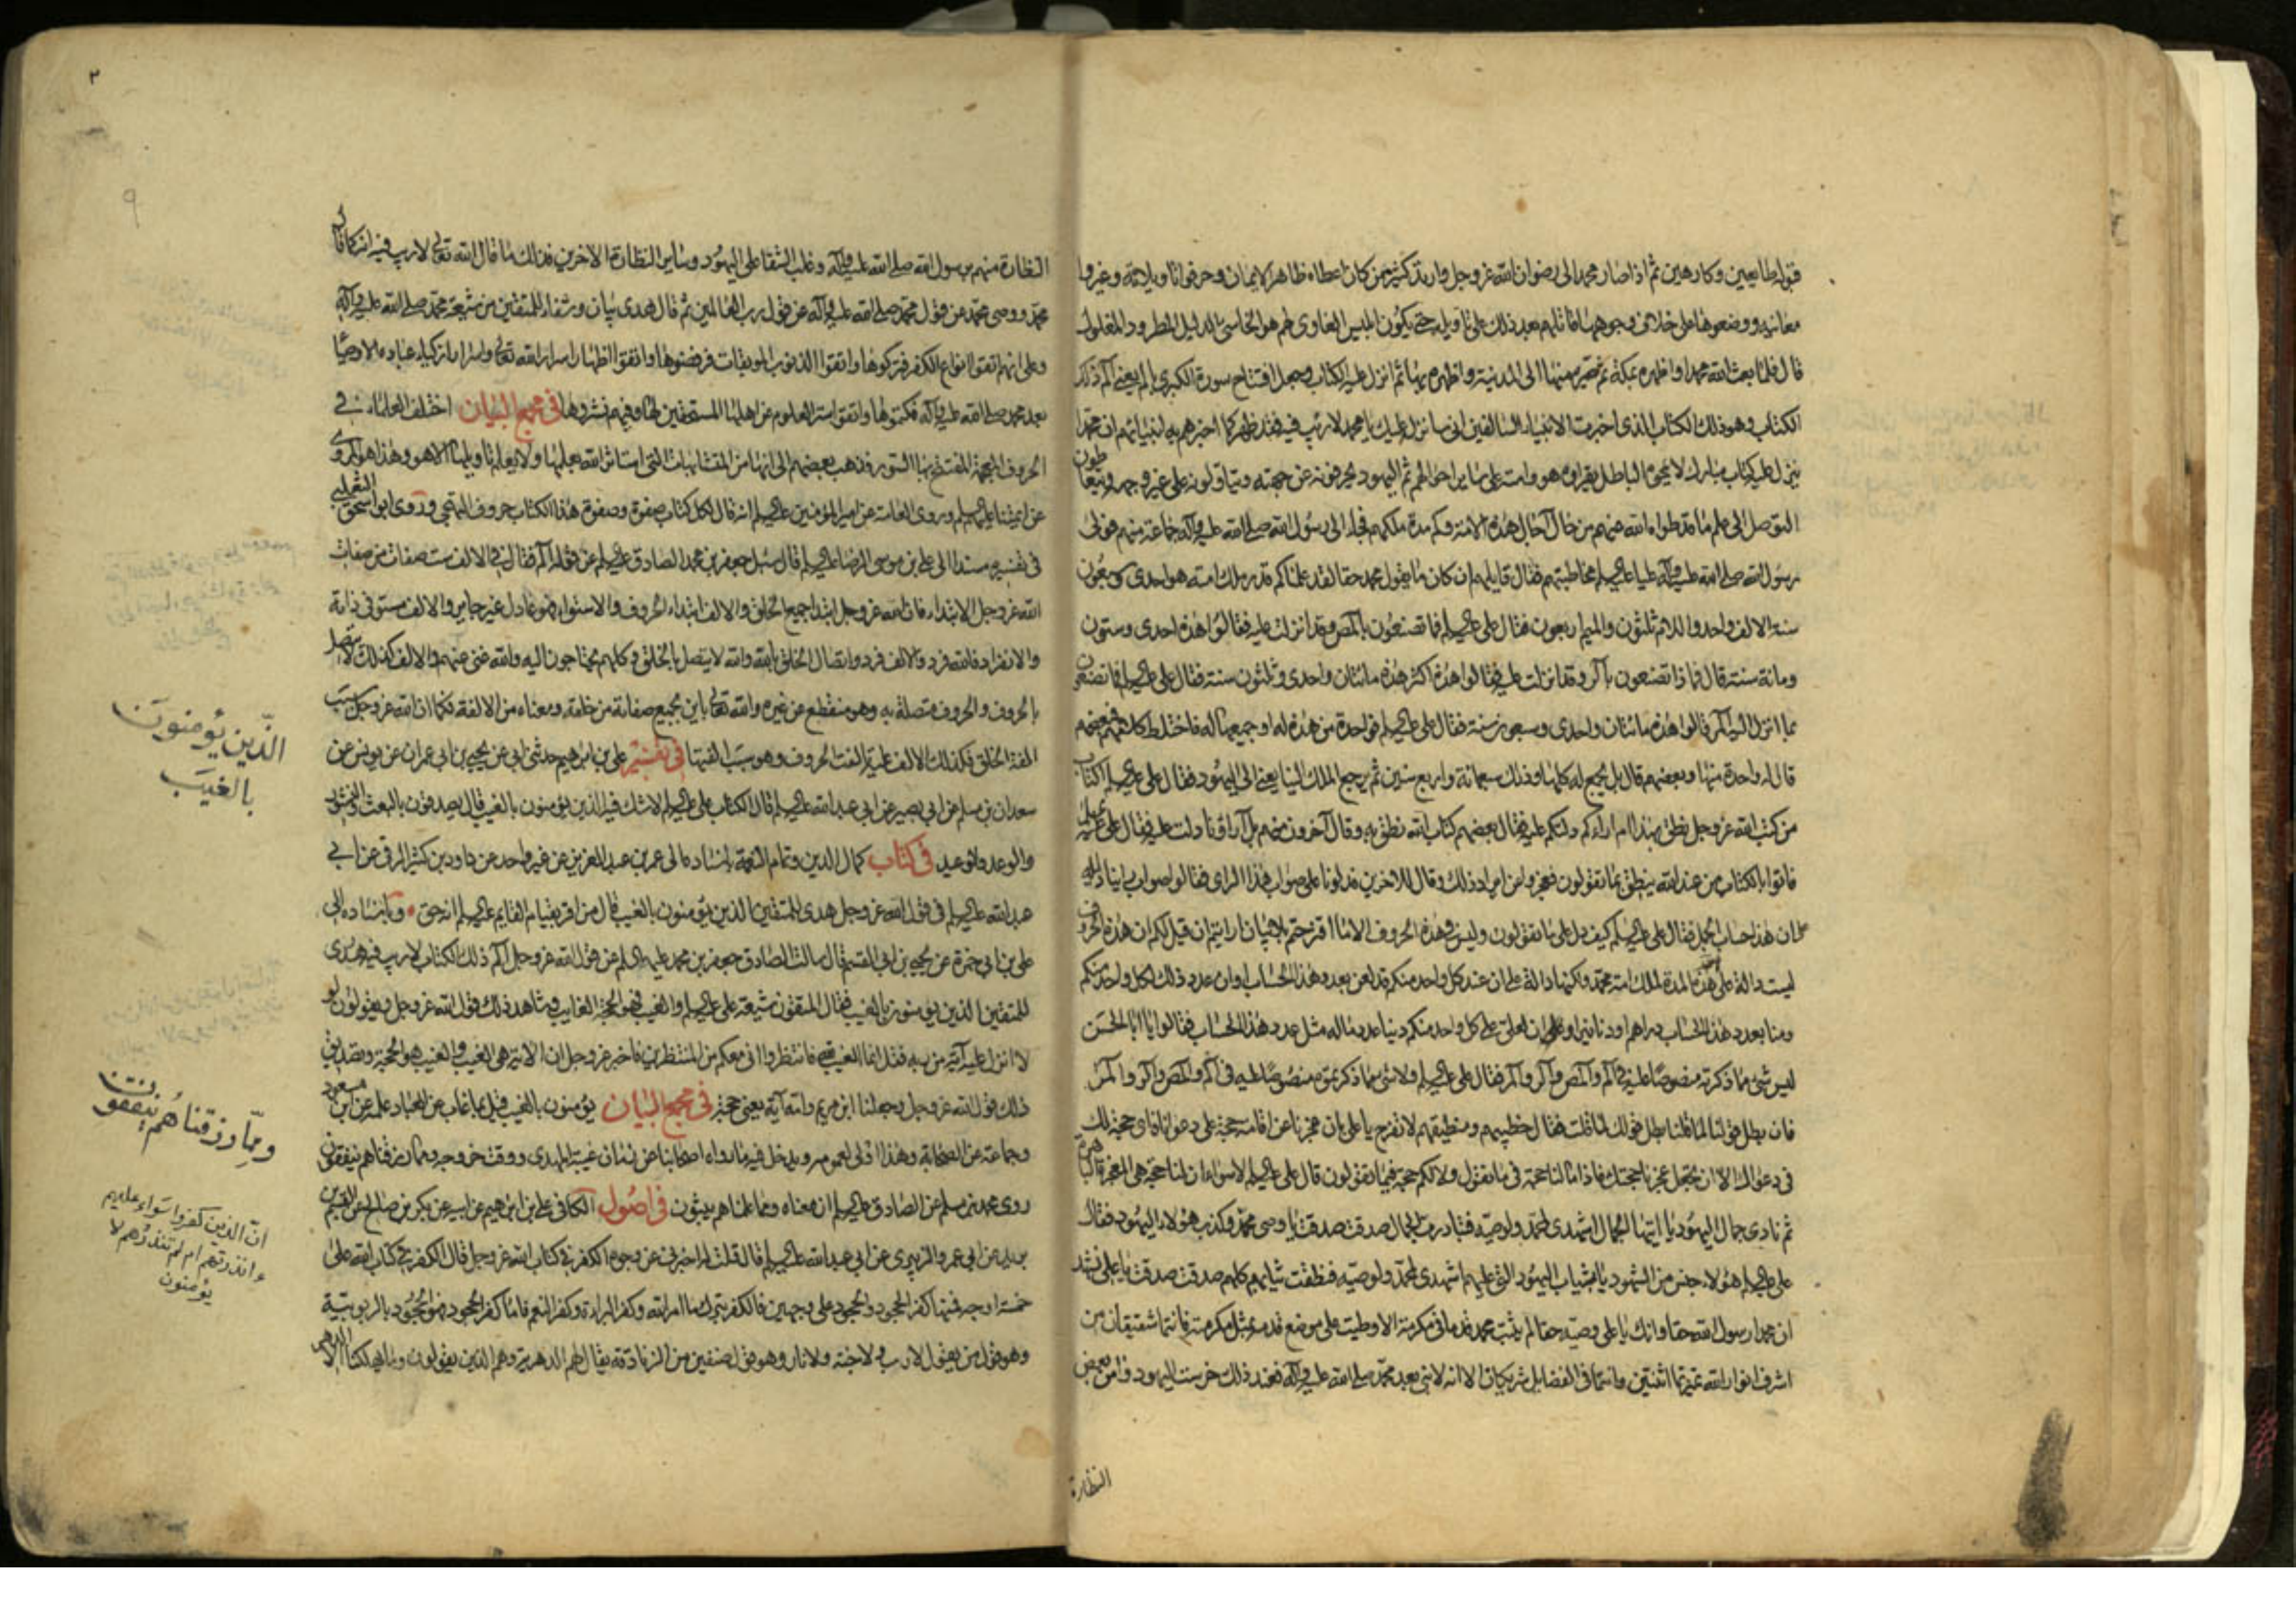 قبوله طايعين وكارهين ثم اذا صار محمد الى رضوان الله عز وجل وارتد كثير ممن كان اعطاه ظاهر الايمان وحرفوا تاويلاته وغيروا
معانيه ووضعوها على خلاف وجوهها قاتلهم بعد ذلك على تاويله حتى يكون ابليس الغاوى لهم هو الخاسئ الذليل المطرود المغلول
قال فلما بعث الله محمدا واظهره بمكة ثم سيره منها الى المدينة واظهره بها ثم انزل عليه الكتاب وجعل افتتاح سورة الكبرى بالم يعنى الم ذلك
الكتاب وهو ذلك الكتاب الذى اخبرت الانبياء السالفين انى سانزله عليك يا محمد لا ريب فيه فقد ظهر كما اخبرهم به انبياؤهم ان محمدا
ينزل عليه كتاب مبارك لا يمحوه الباطل يقراه هو وامته على ساير احوالهم ثم اليهود يحرفونه عن جهته ويتاولونه على غير وجهه ويتعاطون
التوصل الى علم ما قد طواه الله عنهم من حال آجال هذه الامة وكم مدة ملكهم فجاء الى رسول الله صلى الله عليه وآله جماعة منهم فولى
رسول الله صلى الله عليه وآله عليا عليه السلم مخاطبتهم فقال قايلهم ان كان ما يقول محمد حقا لقد علمناكم قدر ملك امته هو احدى وسبعون
سنة الالف واحد واللام ثلثون والميم اربعون فقال على عليه السلم فما تصنعون بالمص وقد انزلت عليه فقالوا هذه احدى وستون
ومائة سنة قال فماذا تصنعون بالر وقد انزلت عليه فقالوا هذه اكثر هذه مائتان واحدى وثلثون سنة فقال على عليه السلم فما تصنعون
بما انزل اليه المر قالوا هذه مائتان واحدى وسبعون سنة فقال على عليه السلم فواحدة من هذه له او جميعها له فاختلط كلامهم فبعضهم
قال له واحدة منها وبعضهم قال بل يجمع له كلها وذلك سبعمائة واربع سنين ثم يرجع الملك الينا يعنى الى اليهود فقال على عليه السلم اكتاب
من كتب الله عز وجل نطق بهذا ام اراؤكم دلتكم عليه فقال بعضهم كتاب الله نطق به وقال آخرون منهم بل آراؤنا دلت عليه فقال على عليه السلم
فاتوا بالكتاب من عند الله ينطق بما تقولون فعجزوا عن ايراد ذلك وقال للاخرين فدلونا على صواب هذا الراى فقالوا صواب راينا دليله
على ان هذا حساب الجمل فقال على عليه السلم كيف دل على ما تقولون وليس فى هذه الحروف الا ما اقترحتم بلا بيان ارايتم ان قيل لكم ان هذه الحروف
ليست دالة على هذه المدة لملك امة محمد ولكنها دالة على ان عند كل واحد منكم قد لعن بعدد هذا الحساب او ان عدد ذلك لكل واحد منكم
ومنا بعدد هذا الحساب دراهم او دنانير او على ان لعلى على كل واحد منكم دينا عدد ماله مثل عدد هذا الحساب فقالوا يا ابا الحسن
ليس شئ مما ذكرته منصوصا عليه فى الم والمص والر والمر فقال على عليه السلم ولا شئ مما ذكرتموه منصوصا عليه فى الم والمص والر والمر
فان بطل قولنا لما قلنا بطل قولك لما قلت فقال خطيبهم ومنطيقهم لا تفرح يا على بان عجزنا عن اقامة حجة على دعوانا فاى حجة لك
فى دعواك الا ان تجعل عجزنا حجتك فاذا ما لنا حجة فى ما نقول ولا لكم حجة فيما تقولون قال على عليه السلم لا سواء ان لنا حجة هى المعجزة الباهرة
ثم نادى جمال اليهود يا ايتها الجمال اشهدى لمحمد ولوصيه فتبادرت الجمال صدقت صدقت يا وصى محمد وكذب هؤلاء اليهود فقال
على عليه السلم هؤلاء جنس من الشهود يا ثياب اليهود التى عليهم اشهدى لمحمد ولوصيه فنطقت ثيابهم كلهم صدقت صدقت يا على نشهد
ان محمدا رسول الله حقا وانك يا على وصيه حقا لم يثبت محمد قدما فى مكرمة الا وطيت على موضع قدمه بمثل مكرمته فانتما شقيقان من
اشرف انوار الله تميزتما اثنتين وانتما فى الفضايل شريكان الا انه لا نبى بعد محمد صلى الله عليه وآله فعند ذلك خرست اليهود وامن بعض
النظارة
٢
٩
النظارة منهم برسول الله صلى الله عليه وآله وغلب الشقا على اليهود وساير النظارة الاخرين فذلك ما قال الله تعالى لا ريب فيه انه كما قال
محمد ووصى محمد عن قول محمد صلى الله عليه وآله عن قول رب العالمين ثم قال هدى بيان وشفاء للمتقين من شيعة محمد صلى الله عليه وآله
وعلى انهم اتقوا انواع الكفر فتركوها واتقوا الذنوب الموبقات فرفضوها واتقوا اظهار اسرار الله تعالى واسرار ازكياء عباده الاوصيا
بعد محمد صلى الله عليه وآله فكتموها واتقوا ستر العلوم عن اهلها المستحقين لها وفيهم نشروها فى مجمع البيان اختلف العلماء فى
الحروف المعجمة المفتتح بها السور فذهب بعضهم الى انها من المتشابهات التى استاثر الله بعلمها ولا يعلم تاويلها الا هو وهذا هو المروى
عن ائمتنا عليهم السلم وروى العامة عن امير المؤمنين عليه السلم انه قال لكل كتاب صفوة وصفوة هذا الكتاب حروف التهجى وروى ابو اسحق الثعلبى
فى تفسيره مسندا الى على بن موسى الرضا عليه السلم قال سئل جعفر بن محمد الصادق عليه السلم عن قوله الم فقال فى الالف ست صفات من صفات
الله عز وجل الابتداء فان الله عز وجل ابتدا جميع الخلق والالف ابتداء الحروف والاستواء فهو عادل غير جاير والالف مستو فى ذاته
والانفراد فالله فرد والالف فرد واتصال الخلق بالله والله لا يتصل بالخلق وكلهم يحتاجون اليه والله غنى عنهم والالف كذلك لا يتصل
بالحروف والحروف متصلة به وهو منقطع عن غيره والله تعالى باين بجميع صفاته من خلقه ومعناه من الالفة فكما ان الله عز وجل سبب
الفة الخلق فكذلك الالف عليه تالفت الحروف وهو سبب الفتها فى تفسير على بن ابرهيم حدثنى ابى عن يحيى بن ابى عمران عن يونس عن
سعدان بن مسلم عن ابى بصير عن ابى عبد الله عليه السلم قال الكتاب على عليه السلم لا شك فيه الذين يؤمنون بالغيب قال يصدقون بالبعث والنشور
والوعد والوعيد فى كتاب كمال الدين وتمام النعمة باسناده الى عمر بن عبد العزيز عن غير واحد عن داود بن كثير الرقى عن ابى
عبد الله عليه السلم فى قول الله عز وجل هدى للمتقين الذين يؤمنون بالغيب قال من اقر بقيام القايم عليه السلم انه حق وباسناده الى
على بن ابى حمزة عن يحيى بن ابى القسم قال سالت الصادق جعفر بن محمد عليه السلم عن قول الله عز وجل الم ذلك الكتاب لا ريب فيه هدى
للمتقين الذين يؤمنون بالغيب فقال المتقون شيعة على عليه السلم والغيب فهو الحجة الغايب وشاهد ذلك قول الله عز وجل ويقولون لو
لا انزل عليه آية من ربه فقل انما الغيب لله فانتظروا انى معكم من المنتظرين فاخبر عز وجل ان الاية هى الغيب والغيب هو الحجة وتصديق
ذلك قول الله عز وجل وجعلنا ابن مريم وامه آية يعنى حجة فى مجمع البيان يؤمنون بالغيب قيل بما غاب عن العباد علمه عن ابن مسعود
وجماعة من الصحابة وهذا اولى لعمومه ويدخل فيه ما رواه اصحابنا عن زمان غيبة المهدى ووقت خروجه ومما رزقناهم ينفقون
روى محمد بن مسلم عن الصادق عليه السلم ان معناه ومما علمناهم يبثون فى اصول الكافى على بن ابرهيم عن ابيه عن بكر بن صالح عن القسم بن
بريد عن ابى عمرو الزبيرى عن ابى عبد الله عليه السلم قال قلت له اخبرنى عن وجوه الكفر فى كتاب الله عز وجل قال الكفر فى كتاب الله على
خمسة اوجه فمنها كفر الجحود والجحود على وجهين فالكفر بترك ما امر الله وكفر البراءة وكفر النعم فاما كفر الجحود فهو الجحود بالربوبية
وهو قول من يقول لا رب ولا جنة ولا نار وهو قول صنفين من الزنادقة يقال لهم الدهرية وهم الذين يقولون وما يهلكنا الا الدهر
الذين يؤمنون
بالغيب
ومما رزقناهم ينفقون
ان الذين كفروا سواء عليهم
ءانذرتهم ام لم تنذرهم لا
يؤمنون